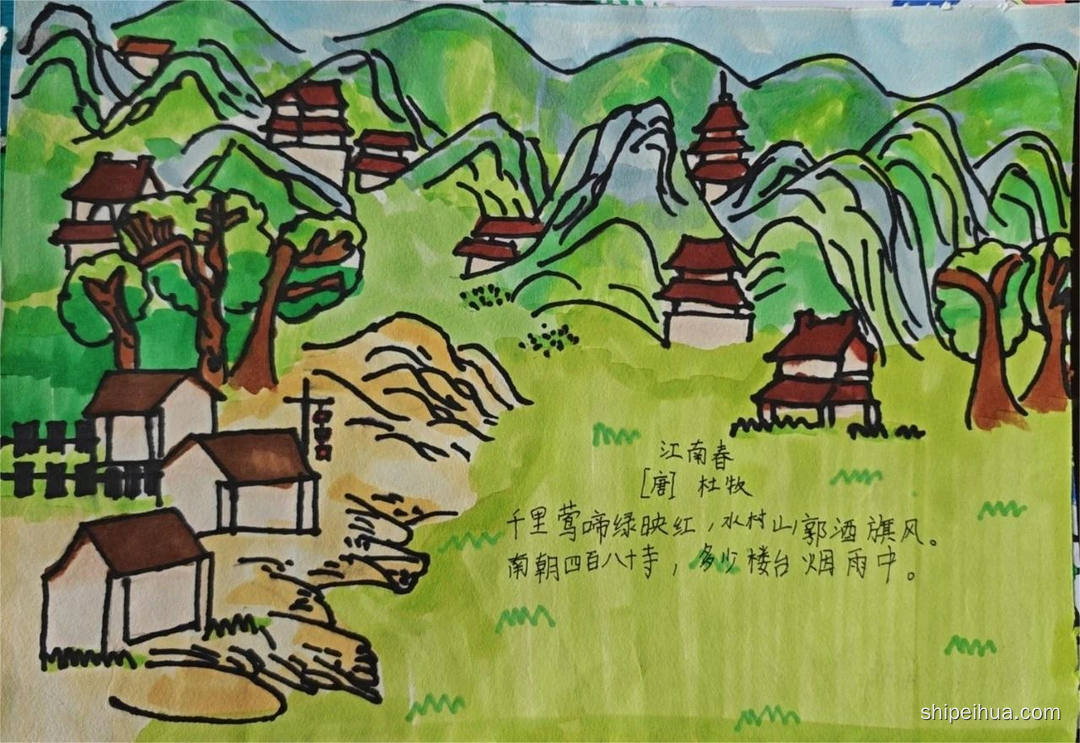 江南春
[唐] 杜牧
千里莺啼绿映红,水村山郭酒旗风。
南朝四百八十寺,多少楼台烟雨中。
shipeihua.com